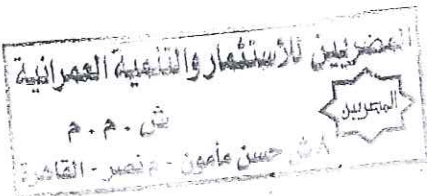 المصريين للأستثمار والتنمية العمرانية
المصريين
ش . م . م
٨ ش حسن مأمون - م نصر - القاهرة